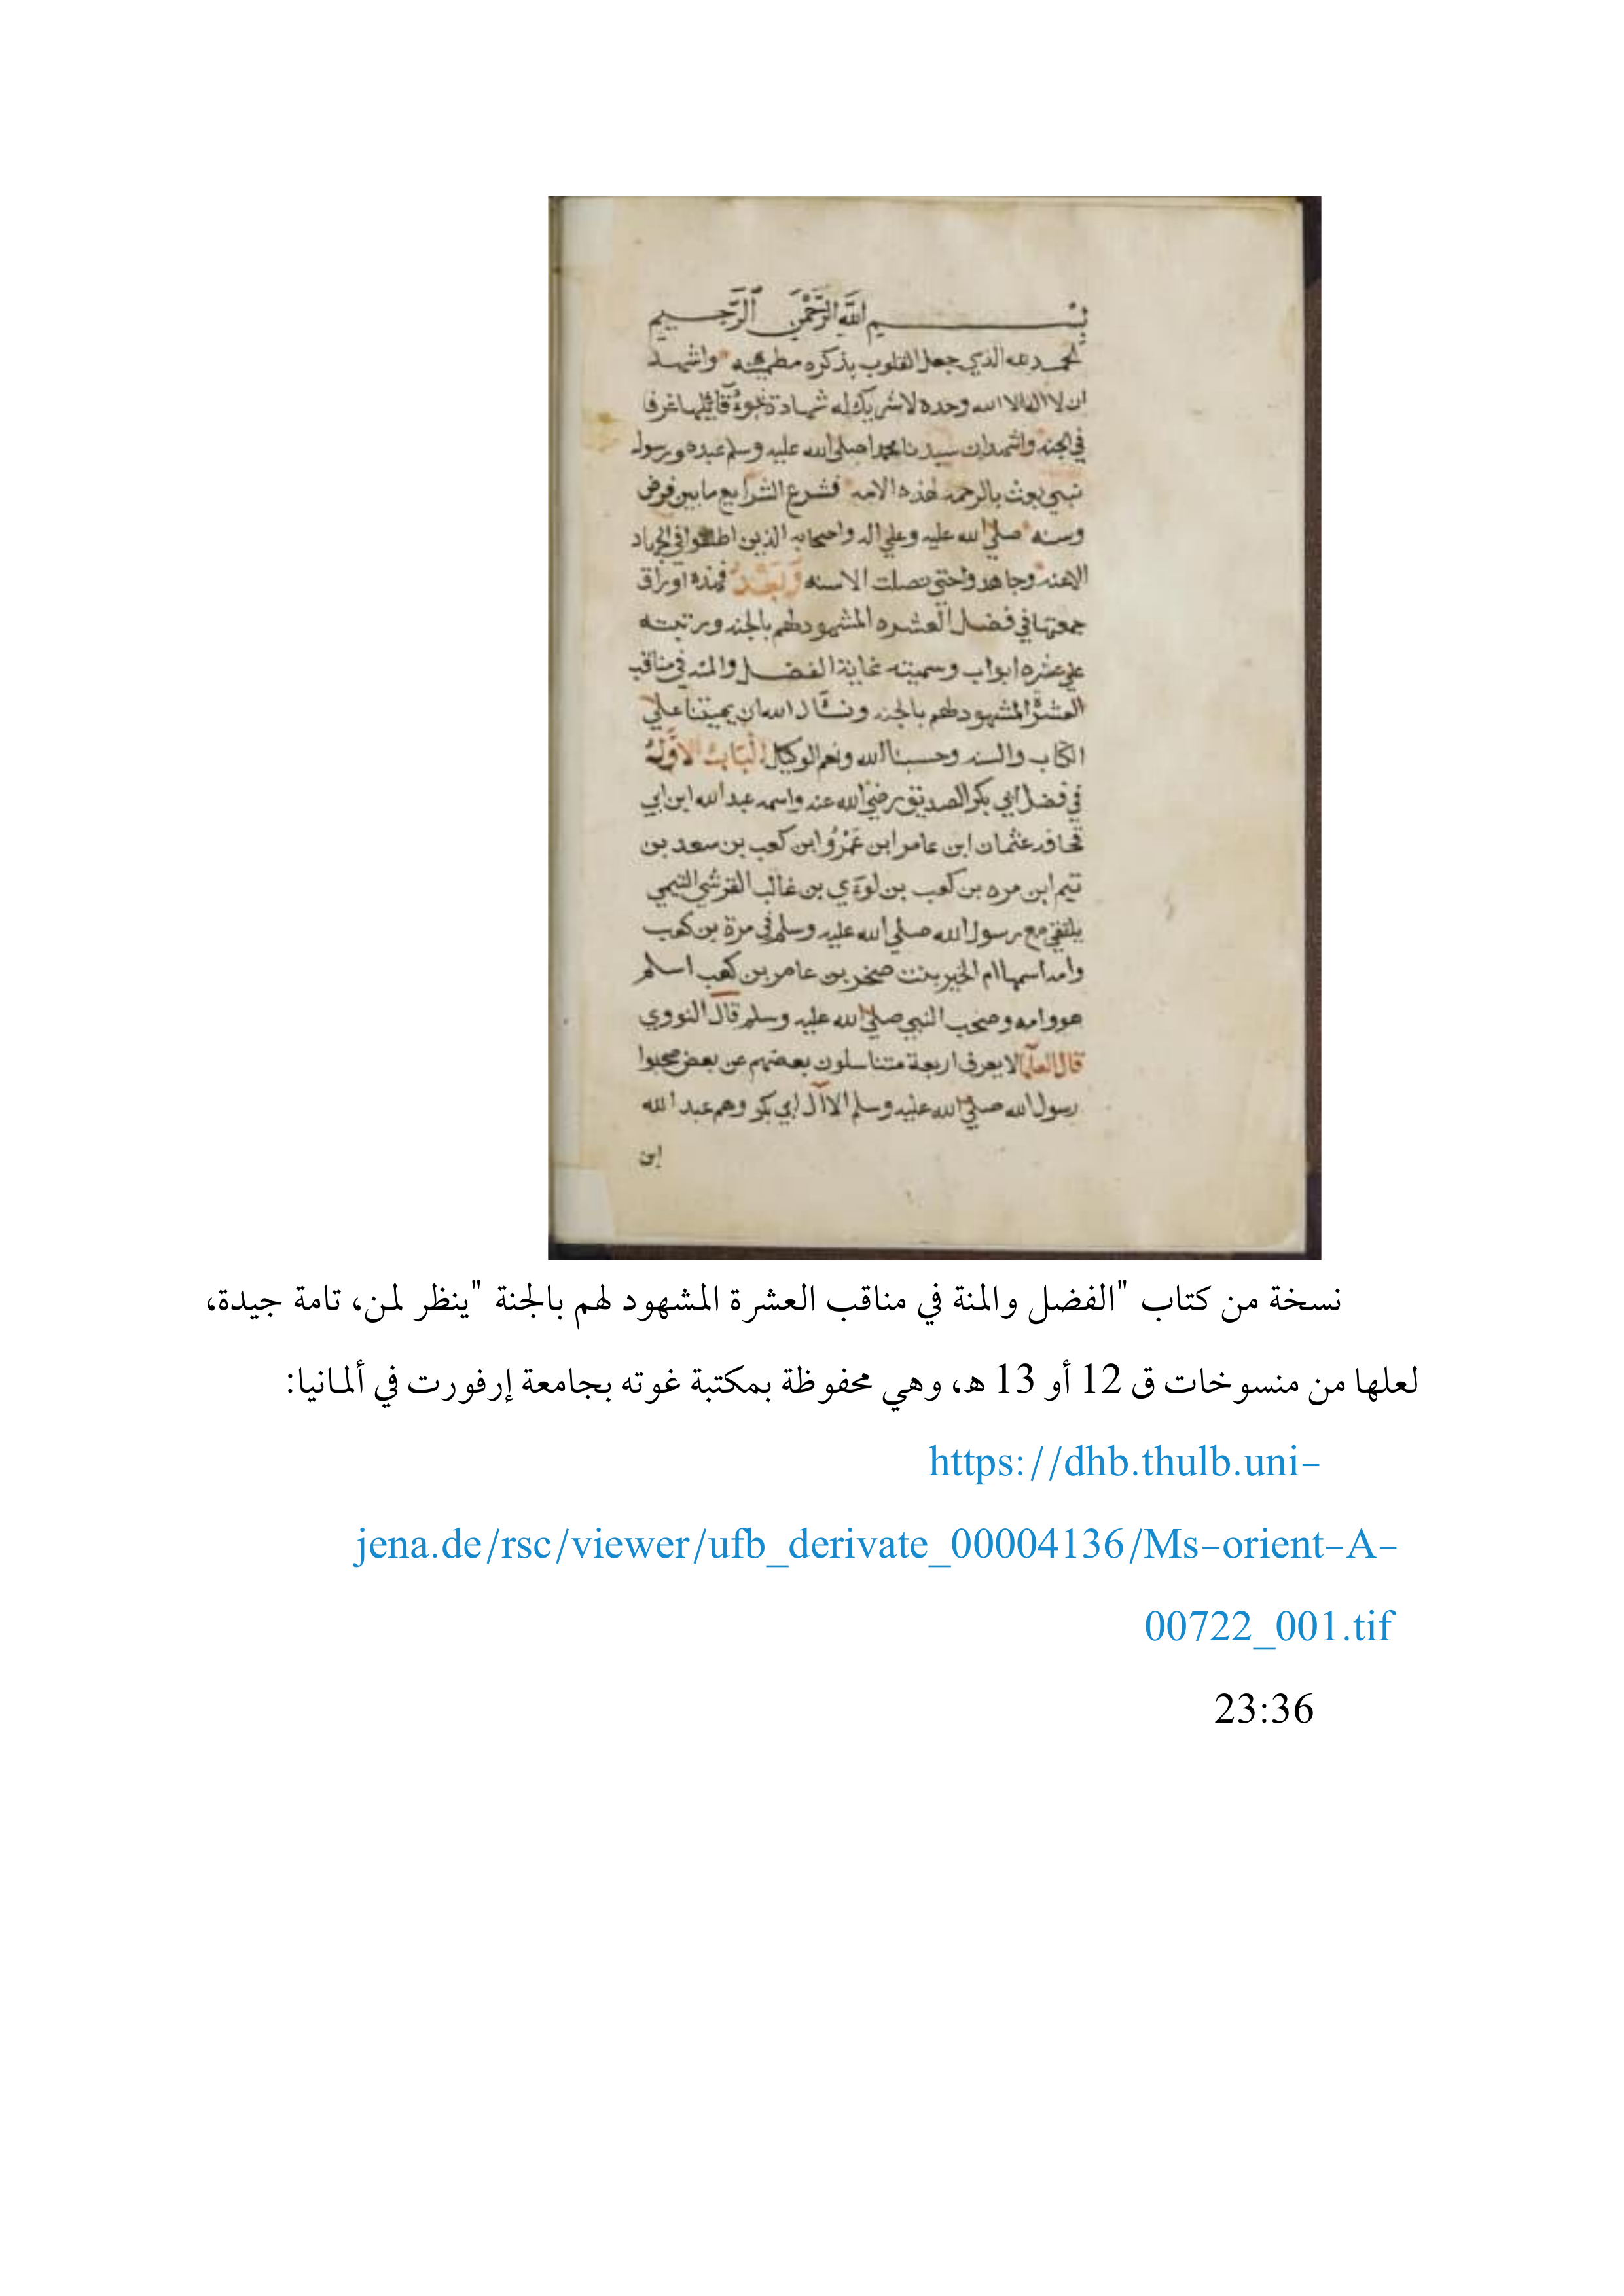 بسم الله الرحمن الرحيم
الحمد لله الذي جعل القلوب بذكره مطمئنه واشهد
ان لا اله الا الله وحده لا شريك له شهادة قائلها غرفا
في الجنه واشهد ان سيدنا محمدا صلي الله عليه وسلم عبده ورسوله
نبي بعث بالرحمه لهذه الامه فشرع الشرايع ما بين فرض
وسنه صلي الله عليه وعلي اله واصحابه الذين في الجهاد
الاعنه وجاهدوا حتي الاسنه وبعد فهذه اوراق
جمعتها في فضل العشره المشهود لهم بالجنه ورتبته
علي عشره ابواب وسميته غاية الفضل والمنه في مناقب
العشرة المشهود لهم بالجنه ونسأل الله ان يميتنا علي
الكتاب والسنه وحسبنا الله ونعم الوكيل الباب الاول
في فضل ابي بكر الصديق رضي الله عنه واسمه عبد الله ابن ابي
قحافه عثمان ابن عامر ابن عمرو ابن كعب بن سعد بن
تيم ابن مره بن كعب بن لؤي بن غالب القرشي التيمي
يلتقي مع رسول الله صلي الله عليه وسلم في مرة بن كعب
وامه اسمها ام الخير بنت صخر بن عامر بن كعب اسلم
هو وامه وصحب النبي صلي الله عليه وسلم قال النووي
قال العلما لا يعرف اربعة متناسلون بعضهم من بعض صحبوا
رسول الله صلي الله عليه وسلم الا آل ابي بكر وهم عبد الله
ابن
نسخة من كتاب "الفضل والمنة في مناقب العشرة المشهود لهم بالجنة "ينظر لمن، تامة جيدة،
لعلها من منسوخات ق 12 أو 13 هـ، وهي محفوظة بمكتبة غوته بجامعة إرفورت في ألمانيا:
https://dhb.thulb.uni-
jena.de/rsc/viewer/ufb_derivate_00004136/Ms-orient-A-
00722_001.tif
23:36